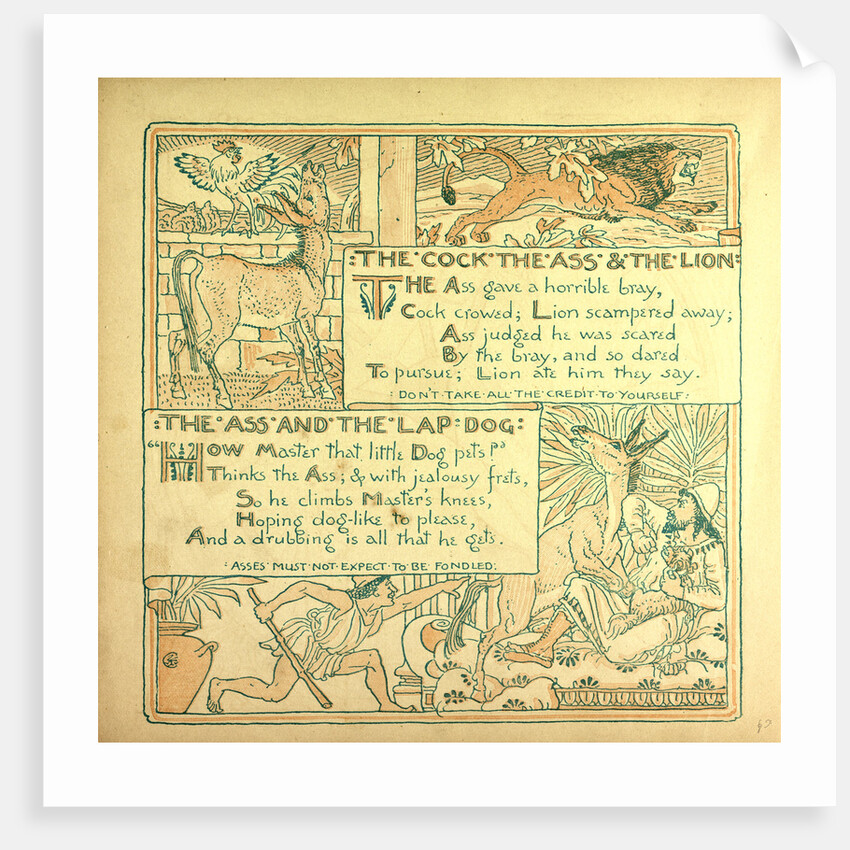 :THE·COCK·THE·ASS·&·THE·LION:
THE Ass gave a horrible bray,
Cock crowed; Lion scampered away;
Ass judged he was scared
By the bray, and so dared
To pursue; Lion ate him they say.
:DON'T·TAKE·ALL·THE·CREDIT·TO·YOURSELF:
:THE·ASS·AND·THE·LAP·DOG:
"HOW Master that little Dog pets!"
Thinks the Ass; & with jealousy frets,
So he climbs Master's knees,
Hoping dog-like to please,
And a drubbing is all that he gets.
:ASSES·MUST·NOT·EXPECT·TO·BE·FONDLED: